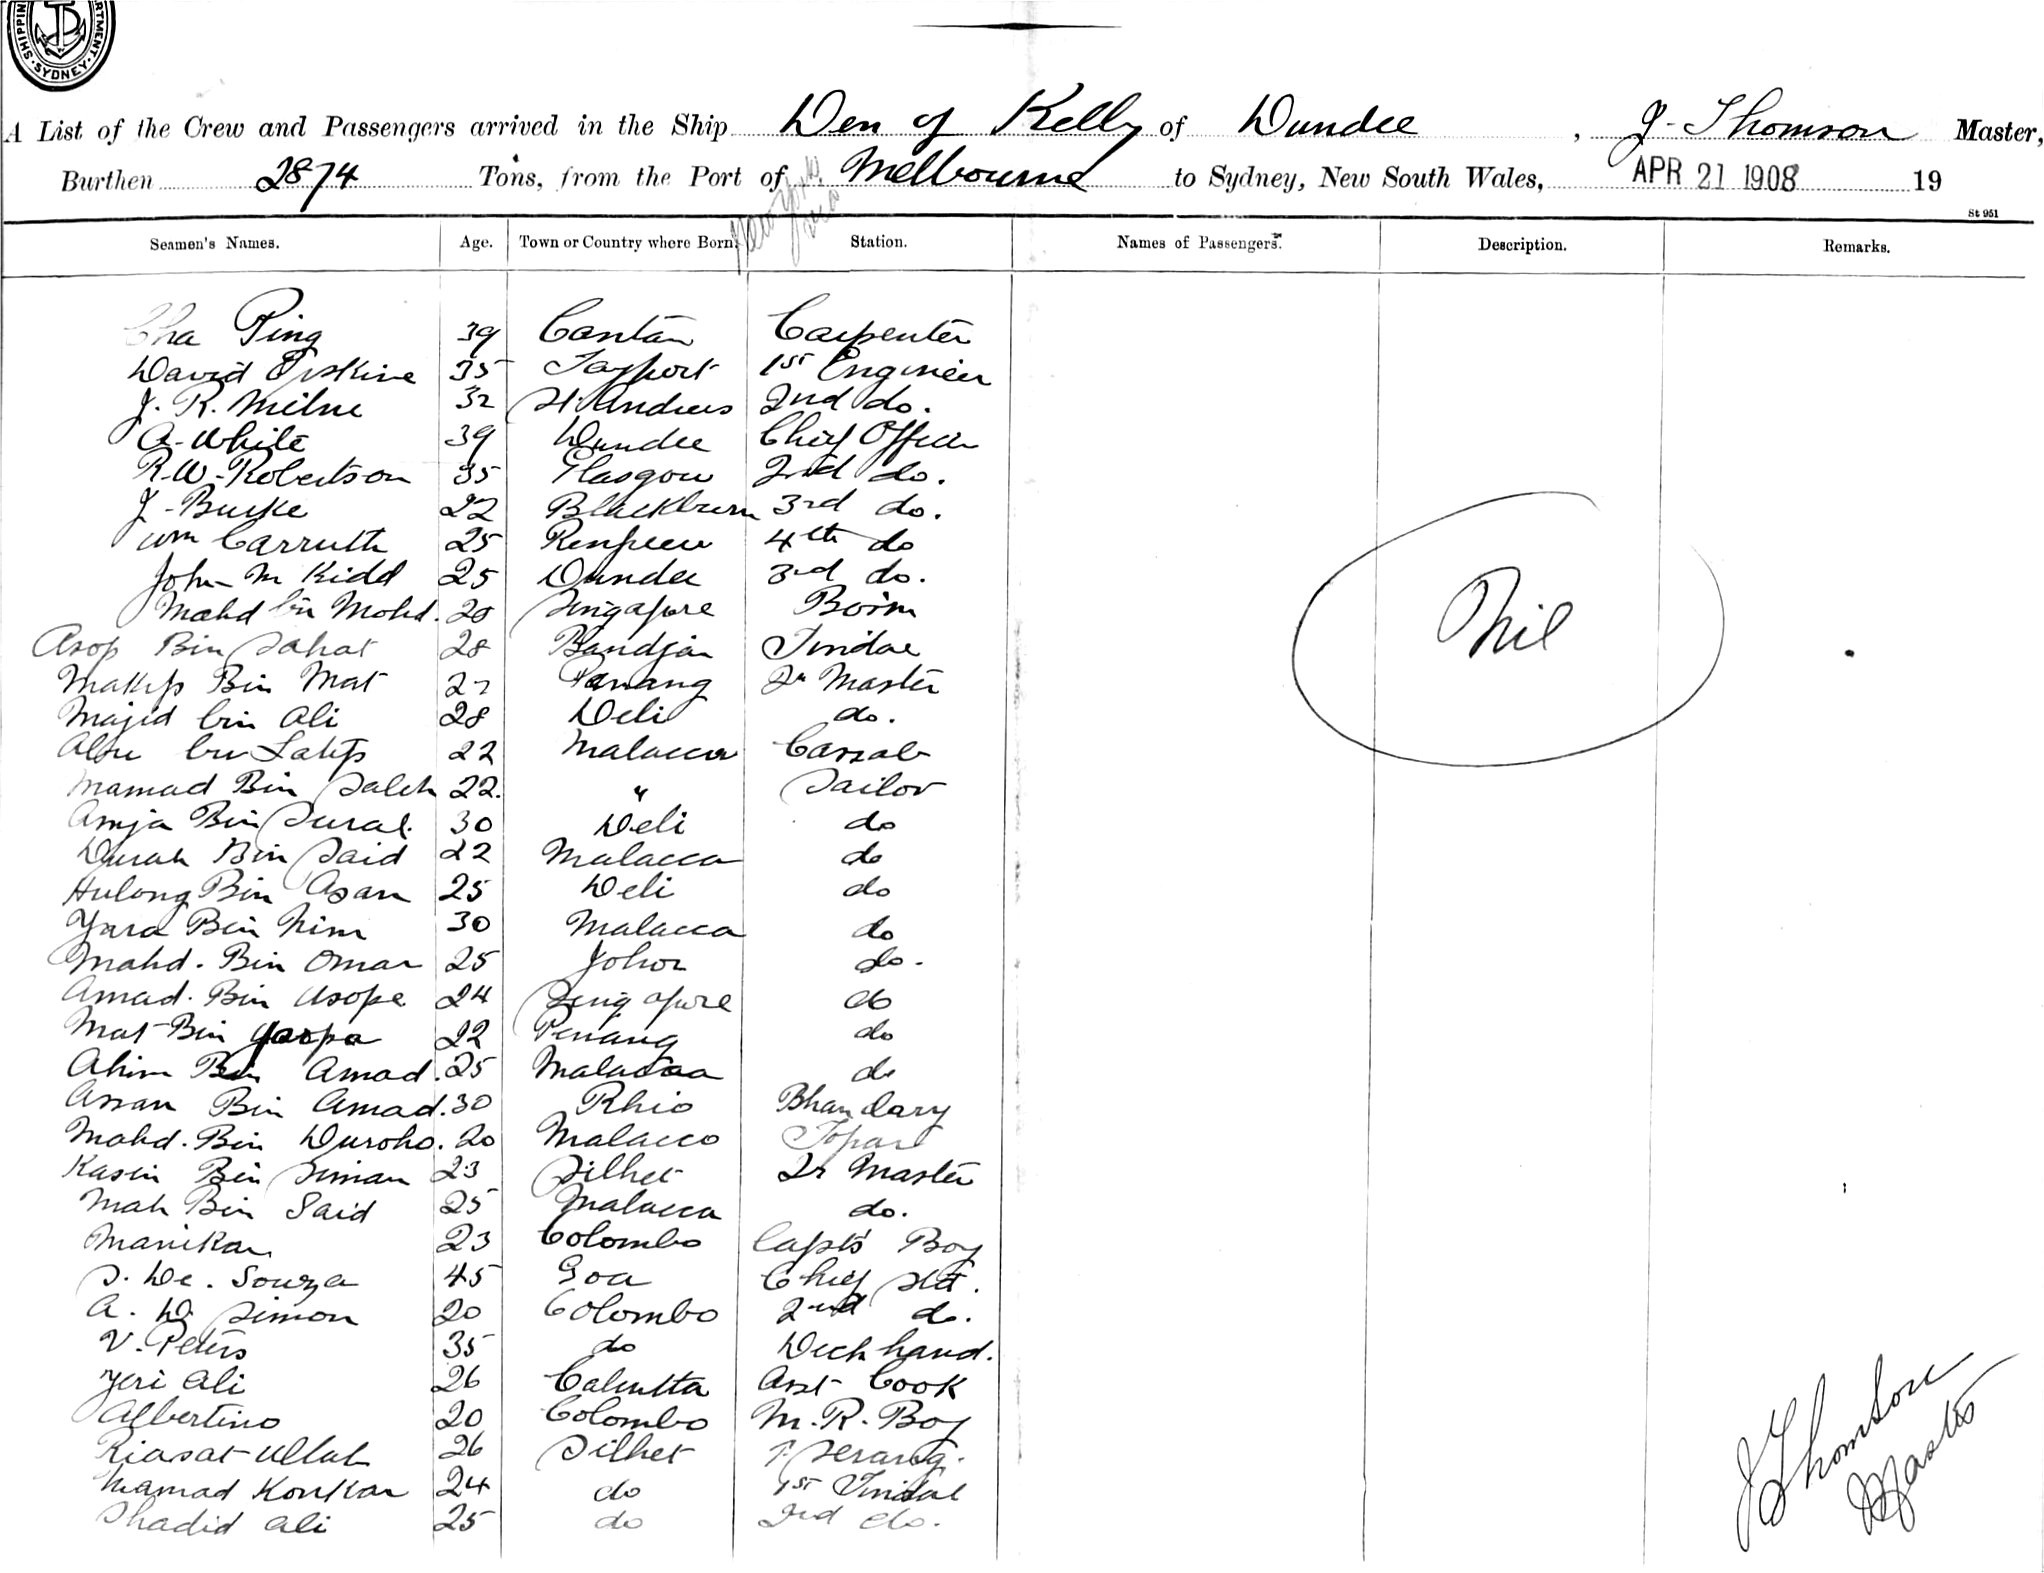 SHIPPING DEPARTMENT. SYDNEY.
A List of the Crew and Passengers arrived in the Ship Den of Kelly of Dundee, J. Thomson Master,
Burthen 2874 Tons, from the Port of Melbourne to Sydney, New South Wales, APR 21 1908 19
St 951
Seamen's Names. Age. Town or Country where Born. Station. Names of Passengers. Description. Remarks.
Cha Ping 39 Canton Carpenter
David Erskine 35 Tayport 1st Engineer
J. R. Milne 32 St. Andrews 2nd do.
A. White 39 Dundee Chief Officer
R. W. Robertson 35 Glasgow 2nd do.
J. Burke 22 Blackburn 3rd do.
Wm Carruth 25 Renfrew 4th do
John M Kidd 25 Dundee 3rd do.
Mahd bin Mohd. 20 Singapore Bosn
Nil
Asop Bin Sahat 28 Bandjar Tindal
Makip Bin Mat 27 Penang Qr Master
Majid bin Ali 28 Deli do.
Abu bin Latip 22 Malacca Cassab
Mamad Bin Saleh 22. " Sailor
Amja Bin Sural. 30 Deli do
Durah Bin Said 22 Malacca do
Hulong Bin Asan 25 Deli do
Yara Bin Nim 30 Malacca do
Mahd. Bin Omar 25 Johor do.
Amad. Bin Usope 24 Singapore do
Mat Bin 22 Penang do
Ahim Bin Amad. 25 Malacca do
Assan Bin Amad. 30 Rhio Bhandary
Mohd. Bin Duroho. 20 Malacco Topas
Kasin Bin Siman 23 Silhet Qr Master
Mah Bin Said 25 Malacca do.
Manikan 23 Colombo Capt's Boy
S. De. Souza 45 Goa Chief Std.
A. D. Simon 20 Colombo 2nd do.
V. Peters 35 do Deck hand.
Yeri Ali 26 Calcutta Asst Cook
Albertino 20 Colombo M. R. Boy
Riasat Ullah 26 Silhet Serang.
Mamad Konkar 24 do 1st Tindal
Shadid Ali 25 do 2nd do.
J Thomson
Master